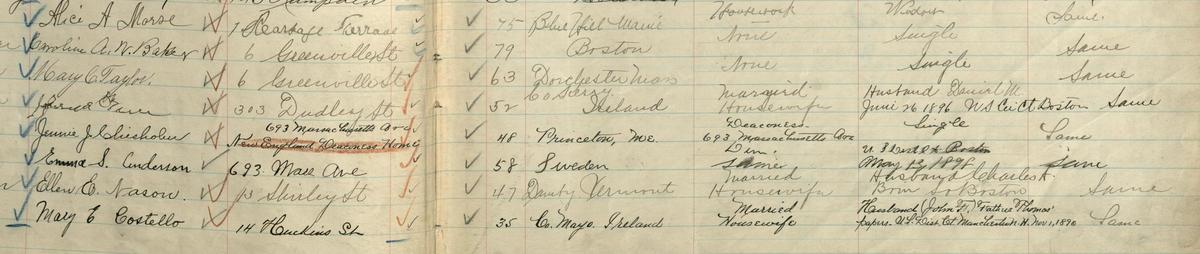 Alice A Morse 7 Hartage Terrace 75 Blue Hill Maine Housework Widow Same.
Caroline A. W. Baker 6 Greenville St 79 Boston None Single Same
Mary C Taylor. 6 Greenville St 63 Dorchester Mass None Single Same
303 Dudley St 52 Co Kerry Ireland Married Housewife Husband Daniel M June 26 1896 U S Cir Ct Boston Same
Jennie J. Chisholm 693 Massachusetts Ave New England Deaconess Home 48 Princeton, Me. Deaconess 693 Massachusetts Ave Single Same
Emma S. Anderson 693 Mass Ave 58 Sweden Same U. S. Dist Ct Boston May 1896 Same
Ellen E. Nason. 13 Shirley St 47 Danby Vermont Married Housewife Husband Charles H. Born So Boston Same
Mary E Costello 14 Huckins St 35 Co. Mayo. Ireland Married Housewife Husband John F. Father Thomas' papers. U.S. Dist. Ct. Manchester N.H. Nov 1, 1890 Same